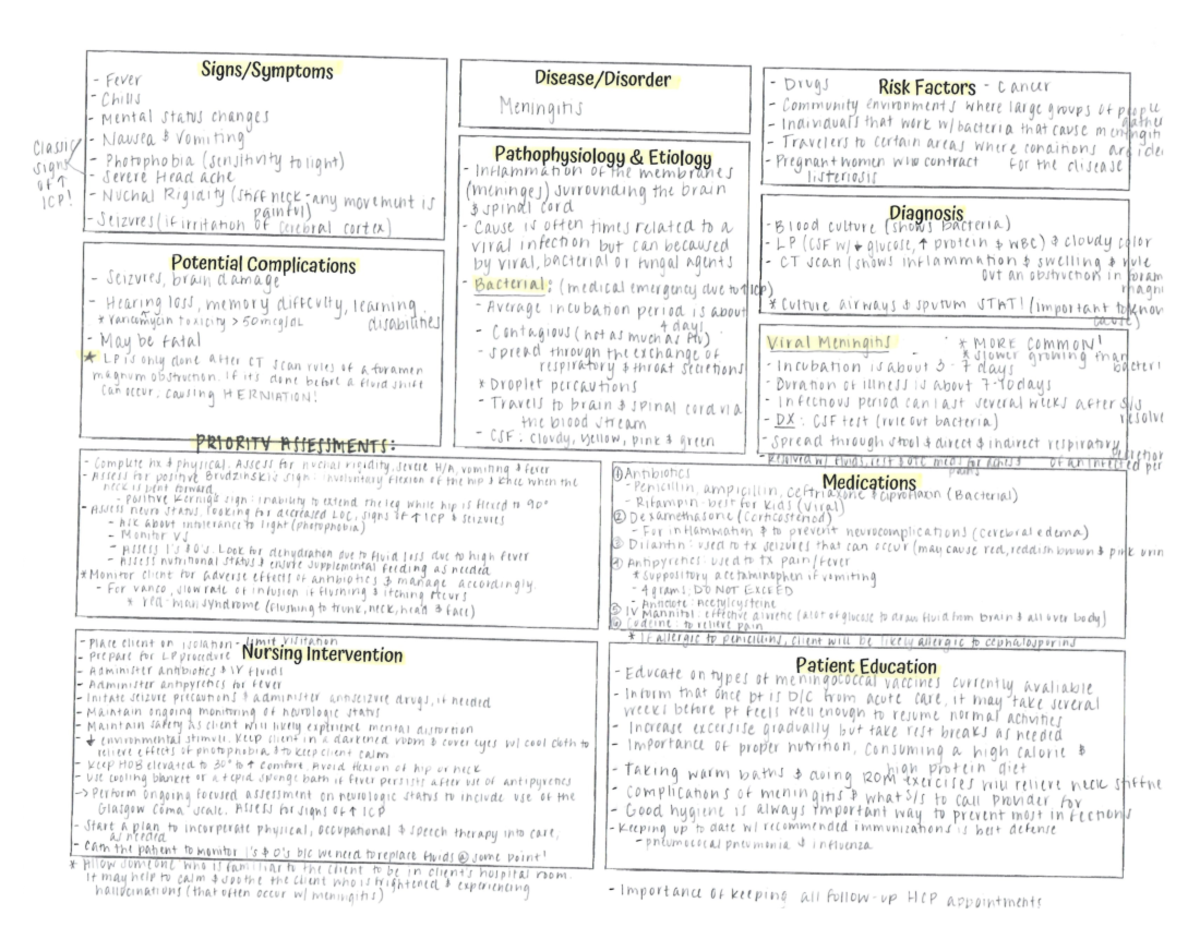 Signs/Symptoms
- Fever
- Chills
- Mental status changes
- Nausea & Vomiting
- Photophobia (sensitivity to light)
- Severe Headache
- Nuchal Rigidity (stiff neck - any movement is
painful)
- Seizures (if irritation of cerebral cortex)
Classic
signs
of ↑
ICP!
Potential Complications
- Seizures, brain damage
- Hearing loss, memory difficulty, learning
disabilities
* Vancomycin toxicity > 50mcg/dL
- May be fatal
* LP is only done after CT scan rules of a foramen
magnum obstruction. If it's done before a fluid shift
can occur, causing HERNIATION!
Disease/Disorder
Meningitis
Pathophysiology & Etiology
- Inflammation of the membranes
(meninges) surrounding the brain
& spinal cord
- Cause is often times related to a
viral infection but can be caused
by viral, bacterial or fungal agents
- Bacterial: (medical emergency due to ↑ICP)
- Average incubation period is about
4 days
- Contagious (not as much as flu)
- Spread through the exchange of
respiratory & throat secretions
* Droplet percautions
- Travels to brain & spinal cord via
the blood stream
- CSF: cloudy, yellow, pink & green
Risk Factors
- Drugs
- Cancer
- Community environments where large groups of people
gather
- Individuals that work w/ bacteria that cause meningiti
- Travelers to certain areas where conditions are ide
for the disease
- Pregnant women who contract
listeriosis
Diagnosis
- Blood culture (shows bacteria)
- LP (CSF w/ ↓ glucose, ↑ protein & WBC) & cloudy color
- CT scan (shows inflammation & swelling & rule
out an obstruction in foram
magn
* Culture airways & sputum STAT! (important to know
cause)
Viral Meningitis
* MORE COMMON!
* slower growing than
bacteri
- Incubation is about 3-7 days
- Duration of illness is about 7-10 days
- Infectious period can last several weeks after s/s
resolve
- DX: CSF test (rule out bacteria)
- Spread through stool & direct & indirect respiratory
secretion
of an infected per
- Resolved w/ fluids, rest & OTC meds for aches &
pains
PRIORITY ASSESSMENTS:
- Complete hx & physical. Assess for nuchal rigidity, severe H/A, vomiting & fever
- Assess for positive Brudzinski's sign: involuntary flexion of the hip & knee when the
neck is bent forward
- Positive Kernig's sign: inability to extend the leg while hip is flexed to 90°
- Assess neuro status, looking for decreased LOC, signs of ↑ ICP & seizures
- Ask about intolerance to light (photophobia)
- Monitor VS
- Assess I's & O's. Look for dehydration due to fluid loss due to high fever
- Assess nutritional status & ensure supplemental feeding as needed
* Monitor client for adverse effects of antibiotics & manage accordingly.
- For vanco, slow rate of infusion if flushing & itching occurs
* red-man syndrome (flushing to trunk, neck, head & face)
Medications
① Antibiotics
- Penicillin, ampicillin, ceftriaxone & ciprofloxin (Bacterial)
- Rifampin: best for kids (viral)
② Dexamethasone (corticosteriod)
- For inflammation & to prevent neurocomplications (cerebral edema)
③ Dilantin: used to tx seizures that can occur (may cause red, reddish brown & pink urin
④ Antipyretics: used to tx pain/fever
* Suppository acetaminophen if vomiting
- 4grams; DO NOT EXCEED
- Antidote: Acetylcysteine
⑤ IV Mannitol: effective diuretic (a lot of glucose to draw fluid from brain & all over body)
⑥ Codeine: to relieve pain
* If allergic to penicillins, client will be likely allergic to cephalosporins
Nursing Intervention
- Place client on isolation - limit visitation
- Prepare for LP procedure
- Administer antibiotics & IV fluids
- Administer antipyretics for fever
- Initate seizure precautions & administer antiseizure drugs, if needed
- Maintain ongoing monitoring of neurologic status
- Maintain safety as client will lively experience mental distortion
- ↓ environmental stimuli. Keep client in a darkened room & cover eyes w/ cool cloth to
relieve effects of photophobia, & to keep client calm
- Keep HOB elevated to 30° to ↑ comfort. Avoid flexion of hip or neck
- Use cooling blanket or a tepid sponge bath if fever persists after use of antipyretics
-> Perform ongoing focused assessment on neurologic status to include use of the
Glasgow Coma Scale. Assess for signs of ↑ ICP
- Start a plan to incorperate physical, occupational & speech therapy into care,
as needed
- Cath the patient to monitor I's & O's b/c we need to replace fluids @ some point!
* Allow someone who is familiar to the client to be in client's hospital room.
It may help to calm & soothe the client who is frightened & experiencing
hallucinations (that often occur w/ meningitis)
Patient Education
- Educate on types of meningococcal vaccines currently avaliable
- Inform that once pt is D/C from acute care, it may take several
weeks before pt feels well enough to resume normal activities
- Increase excersise gradually but take rest breaks as needed
- Importance of proper nutrition, consuming a high calorie &
high protein diet
- Taking warm baths & doing ROM exercises will relieve neck stiffne
- Complications of meningitis & what s/s to call provider for
- Good hygiene is always important way to prevent most infections
- Keeping up to date w/ recommended immunizations is best defense
- pneumococcal pneumonia & influenza
- Importance of keeping all follow-up HCP appointments